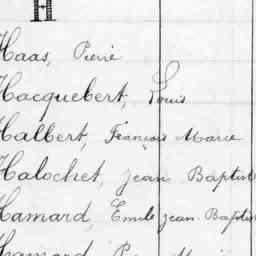 H
Haas, Pierre
Hacquebert, Louis
Halbert, François Marie
Halochet, Jean Baptist
Hamard, Emile Jean Baptis